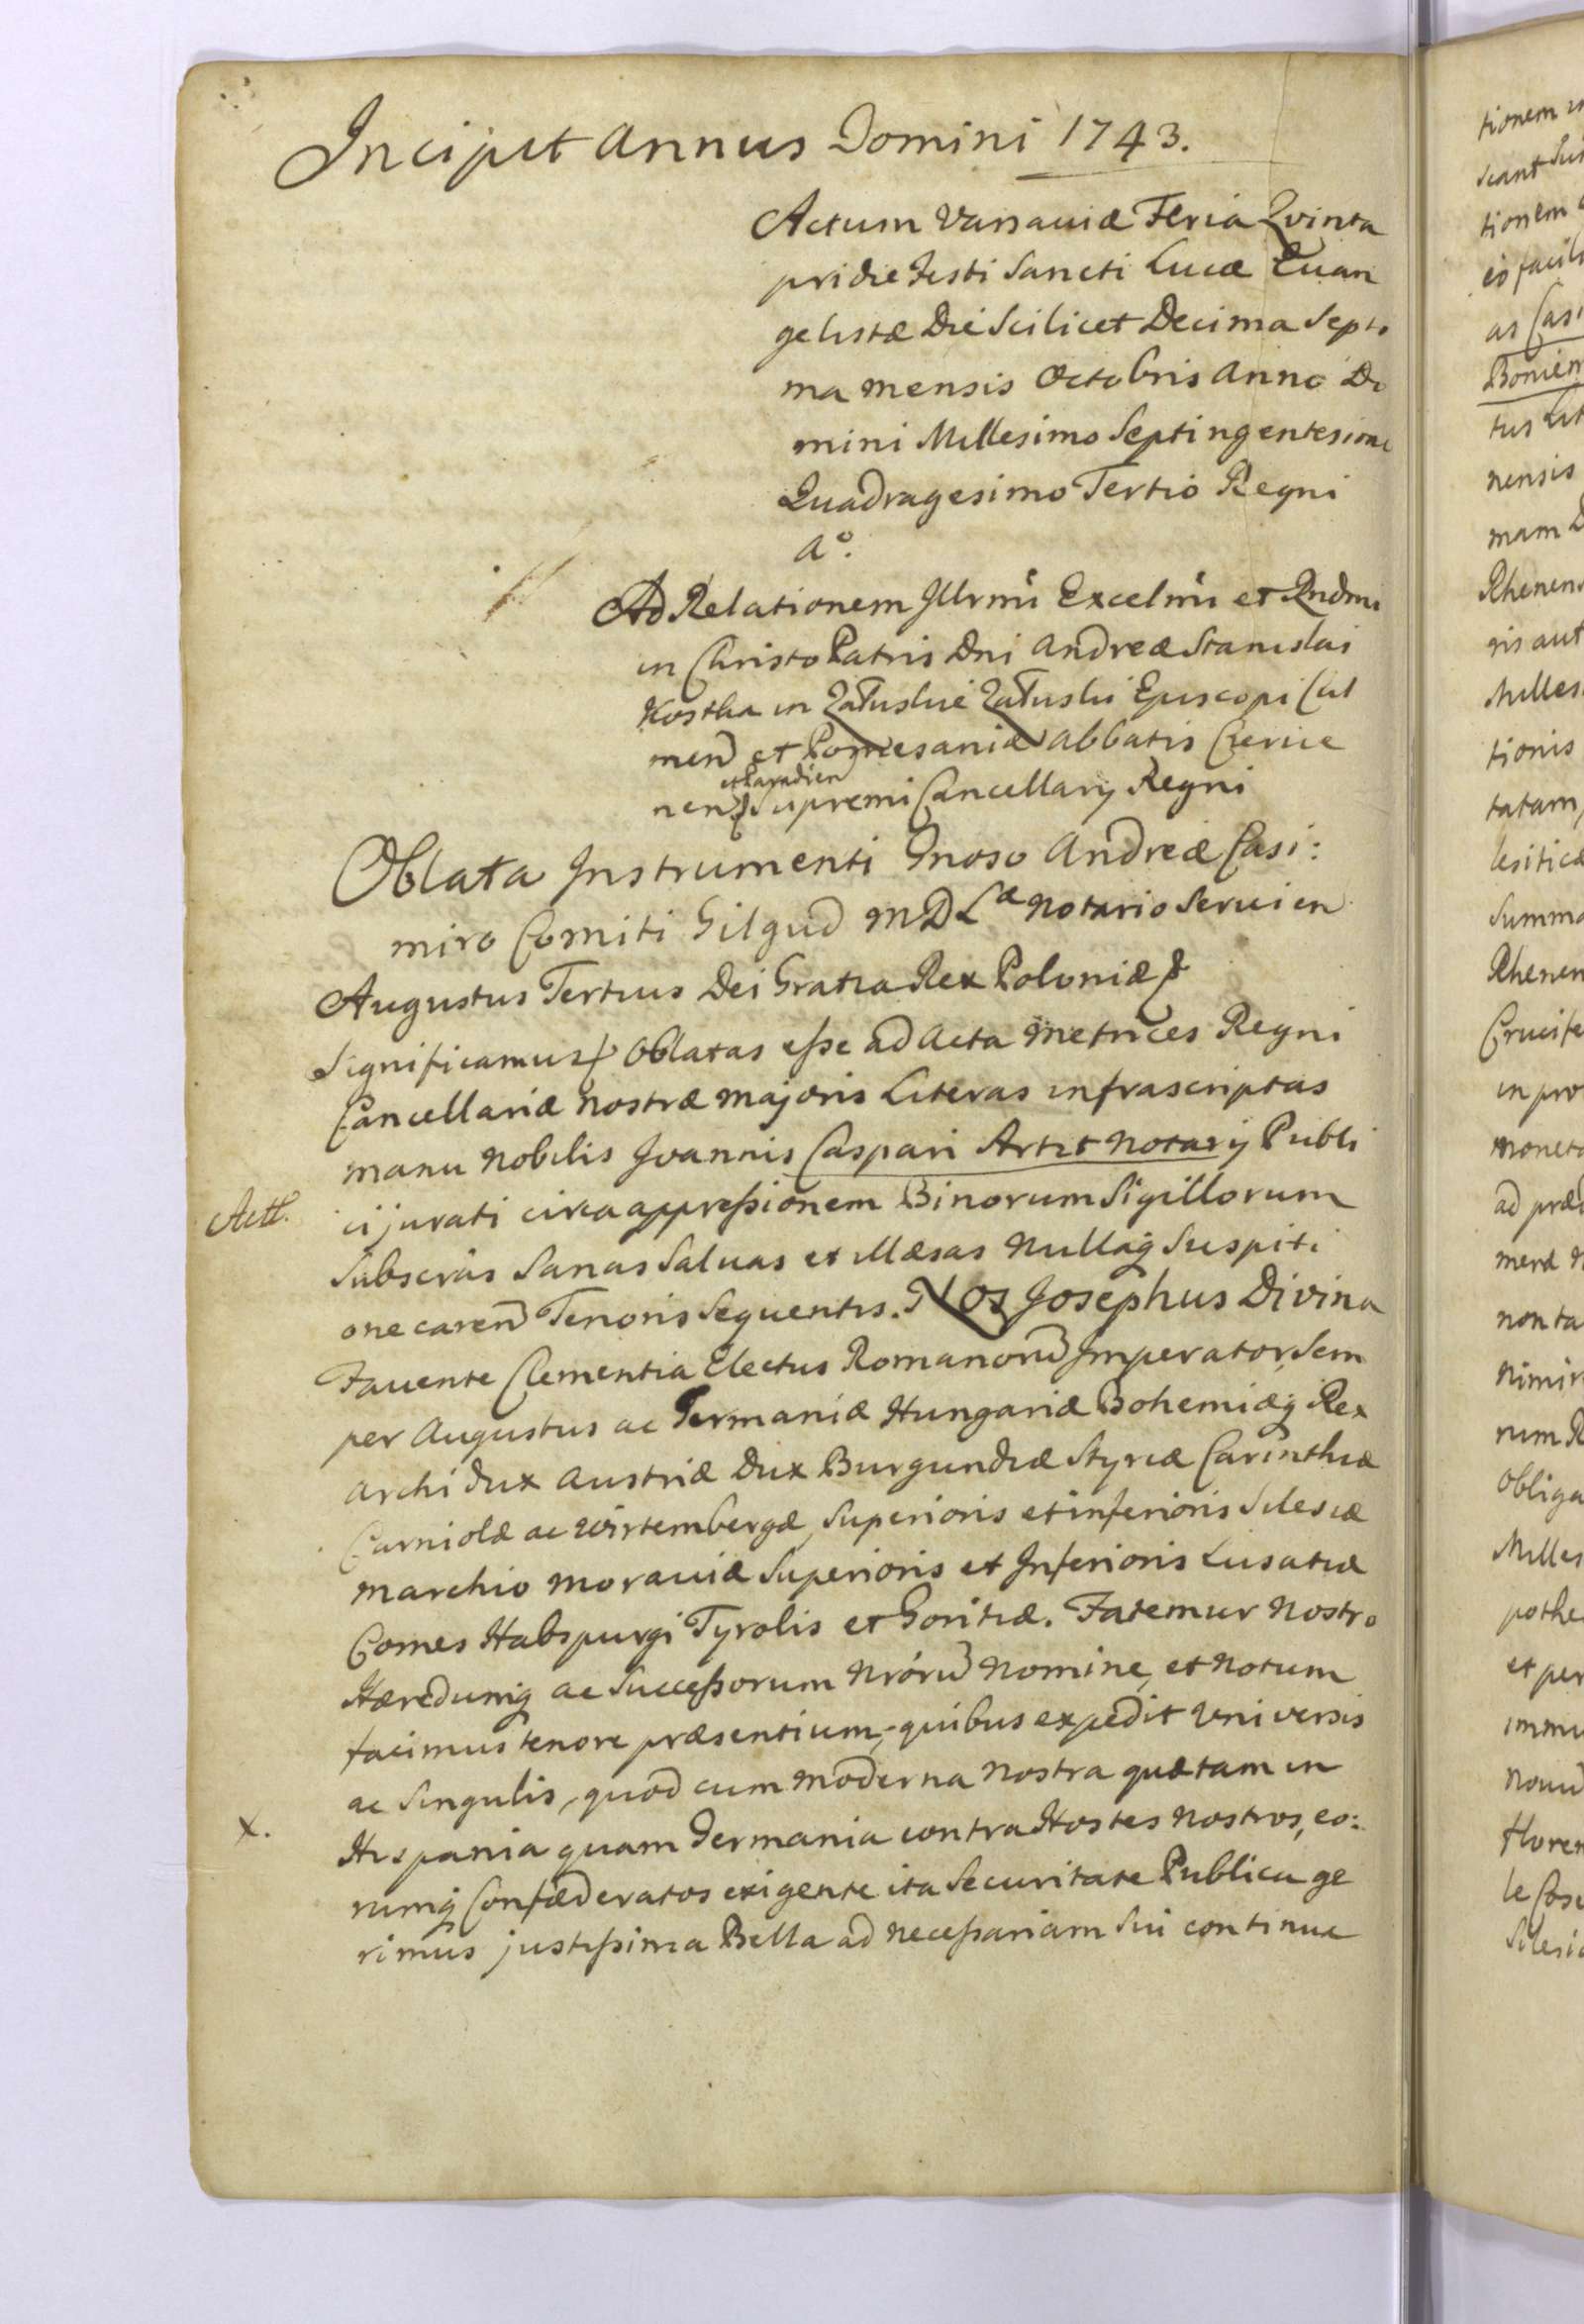 Incipit Annus Domini 1743.
Actum Varsaviæ Feria Qvinta
pridie Festi Sancti Lucæ Euan
gelistæ Die Scilicet Decima Septi
ma mensis Octobris Anno Do
mini Millesimo Septingentesimo
Quadragesimo Tertio Regni
Aº.
Ad Relationem Illrmi Excelmi et Rndmi
in Christo Patris Dni Andreæ Stanislai
Kostka in Załuskie Załuski Episcopi Cul
men et Pomesaniæ Abbatis Czerwe
et Paradien
nen Supremi Cancellarij Regni
Oblata Instrumenti Gnoso Andreæ Casi:
miro Comiti Gilgud M D Læ Notario Seruien
Augustus Tertius Dei Gratia Rex Poloniæ &
Significamus & Oblatas esse ad Acta Metrices Regni
Cancellariæ nostræ majoris Literas infrascriptas
manu Nobilis Joannis Caspari Artzt Notarij Publi
Actt.
ci jurati circa appressionem Binorum Sigillorum
Subscras Sanas Saluas et Illæsas Nullaq Suspiti
one caren Tenoris Sequentis. Nos Josephus Divina
Fauente Clementia Electus Romanoru Imperator, Sem
per Augustus ac Germaniæ Hungariæ Bohemiæq Rex
Archi Dux Austriæ Dux Burgundiæ Styriæ Carinthiæ
Carniolæ ac Wirtembergæ, Superioris et inferioris Silesiæ
Marchio Morauiæ Superioris et Inferioris Lusatiæ
Comes Habspurgi Tyrolis et Goritiæ. Fatemur Nostro
Hæredumq ac Successorum Nróru Nomine, et Notum
facimus tenore præsentium, quibus expedit Universis
ac Singulis, quod cum moderna nostra quæ tam in
X.
Hispania quam Germania contra Hostes Nostros, eo:
rumq Confæderatos exigente ita Securitate Publica ge
rimus justissima Bella ad necessariam Sui continua
tionem
tionem
as Casi
nensis
mam
Rhenen
ris aut
Milles
tionis
tatam,
lesiticæ
Summa
Rhenen
Crucife
in pro
moneta
ad præ
non ta
Nimir
rum R
Obliga
Milles
pothe
et per
immu
Floren
Silesia